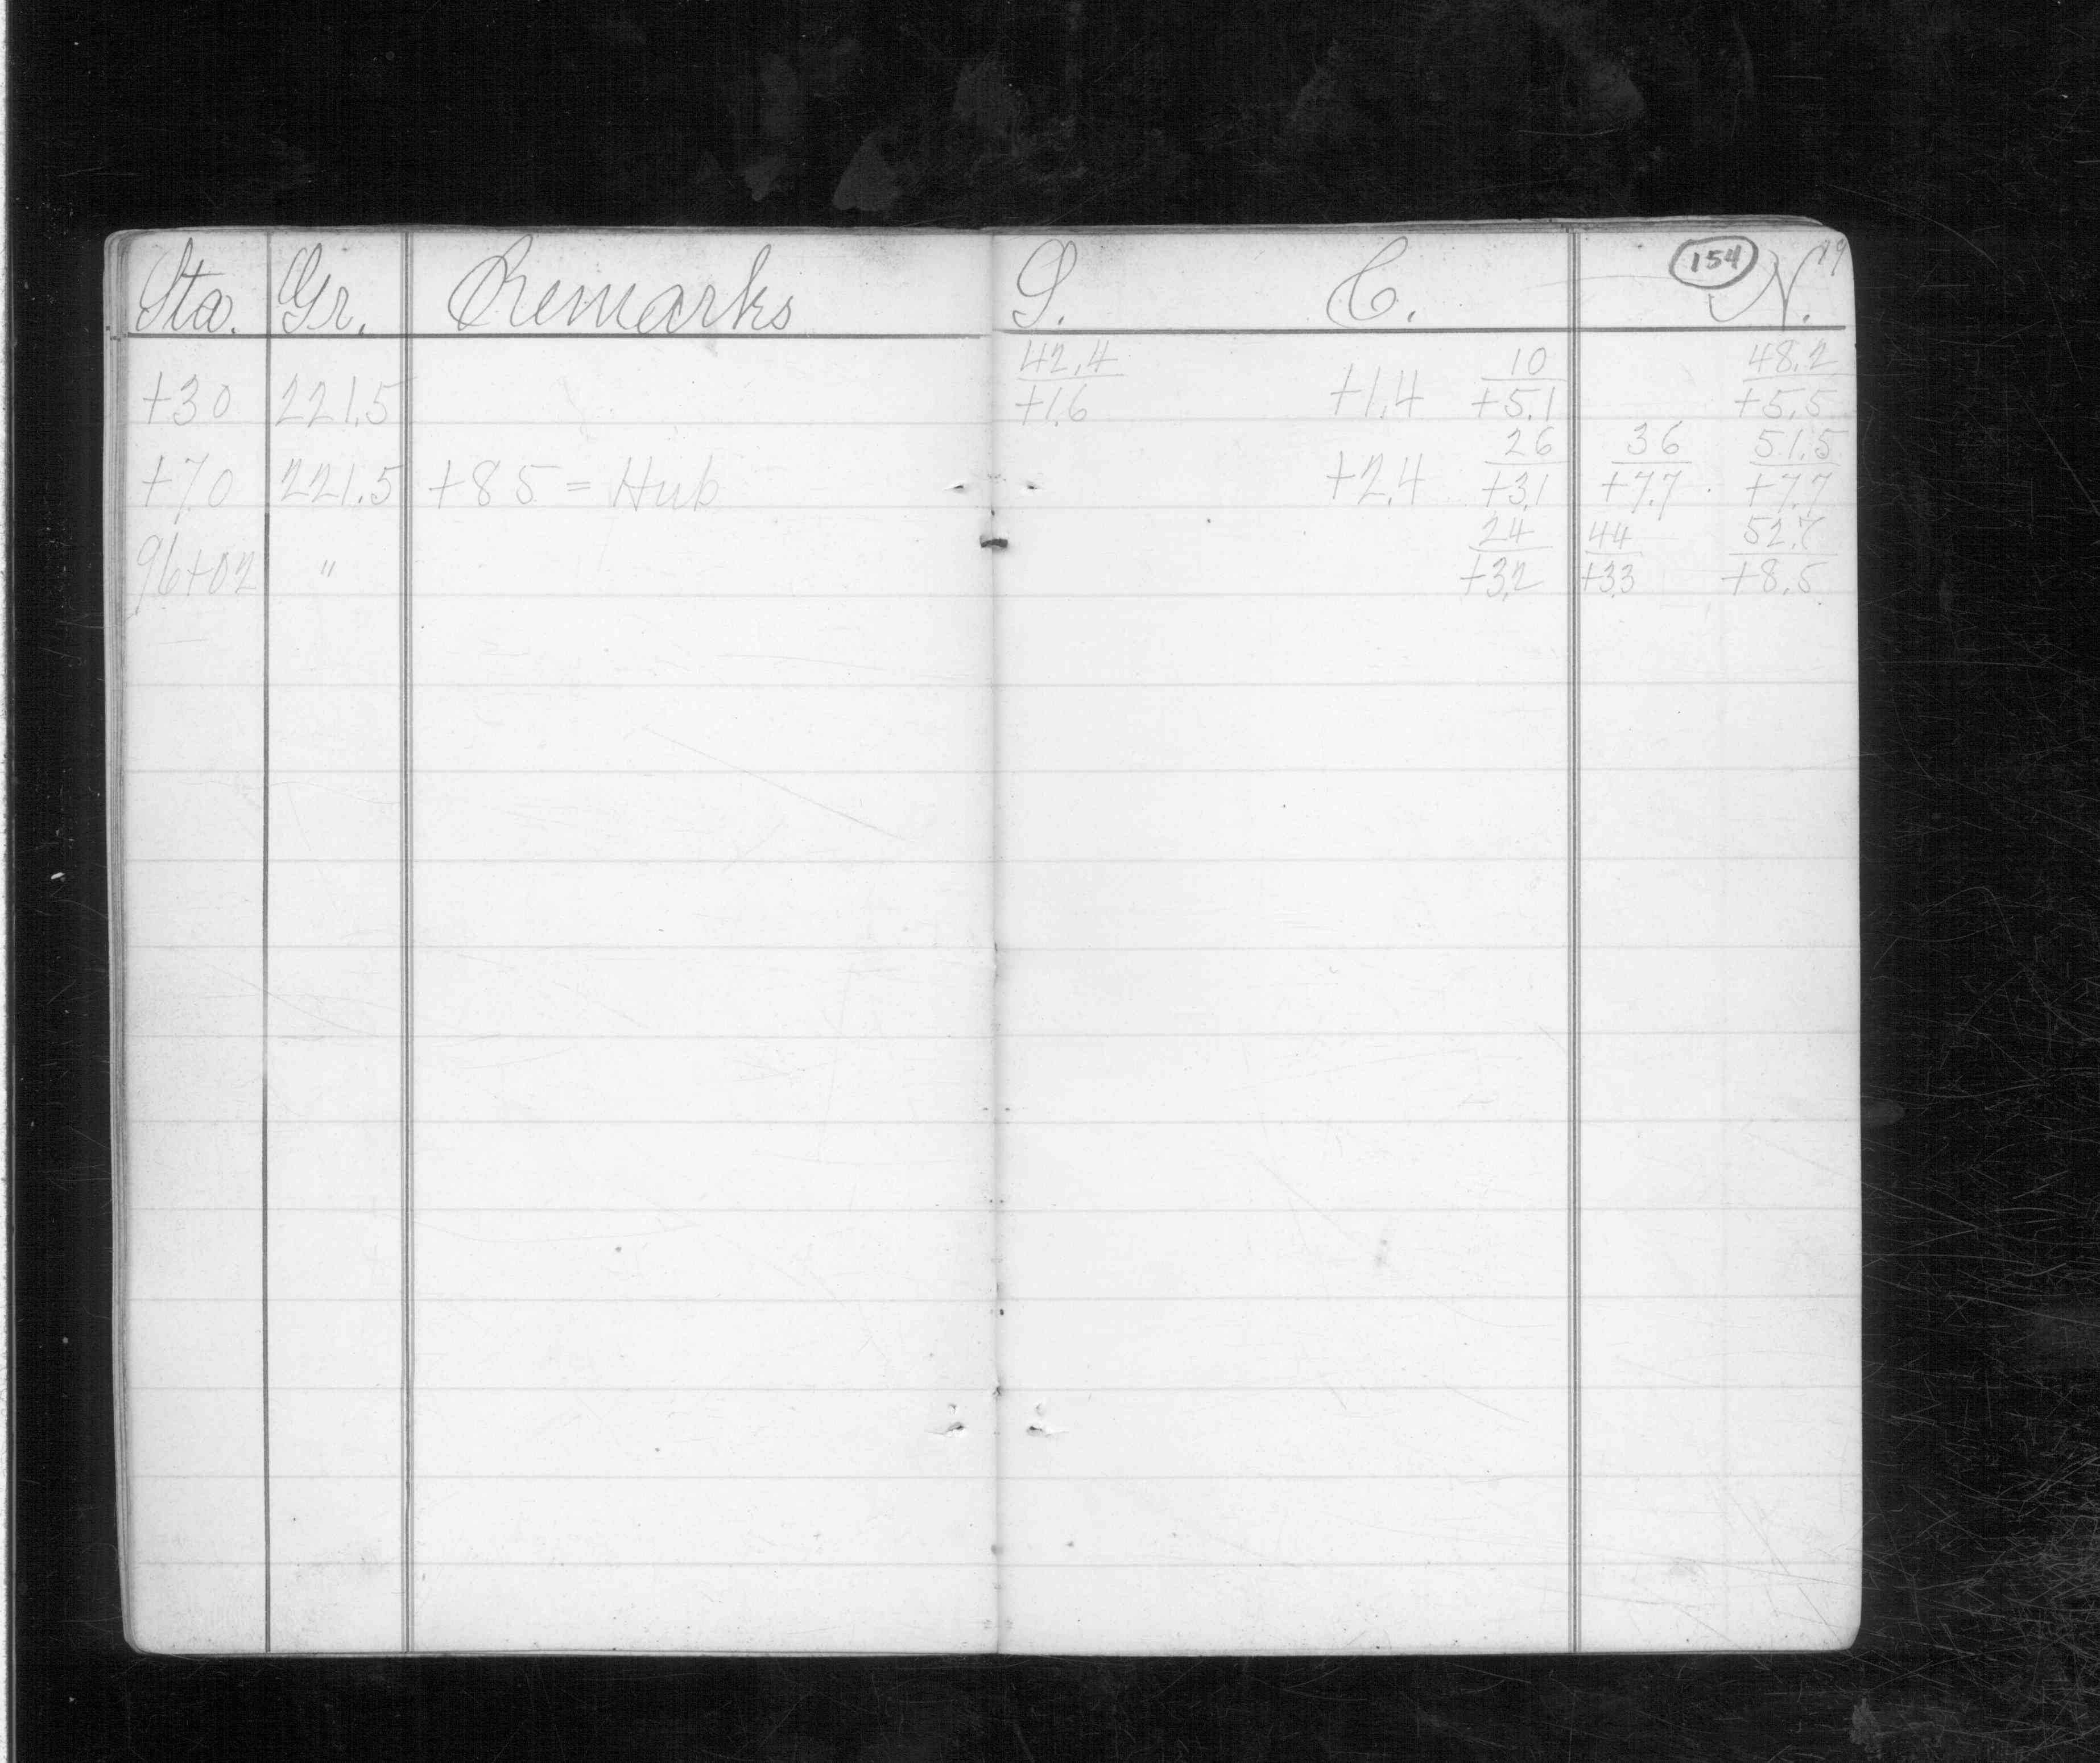 Sta. Gr. Remarks S. C. 154 N. 79
42.4 10 48.2
+30 221.5 +1.6 +1.4 +5.1 +5.5
26 36 51.5
+70 221.5 +85 = Hub +2.4 +3.1 +7.7 +7.7
24 44 52.7
96+02 " +3.2 +3.3 +8.5